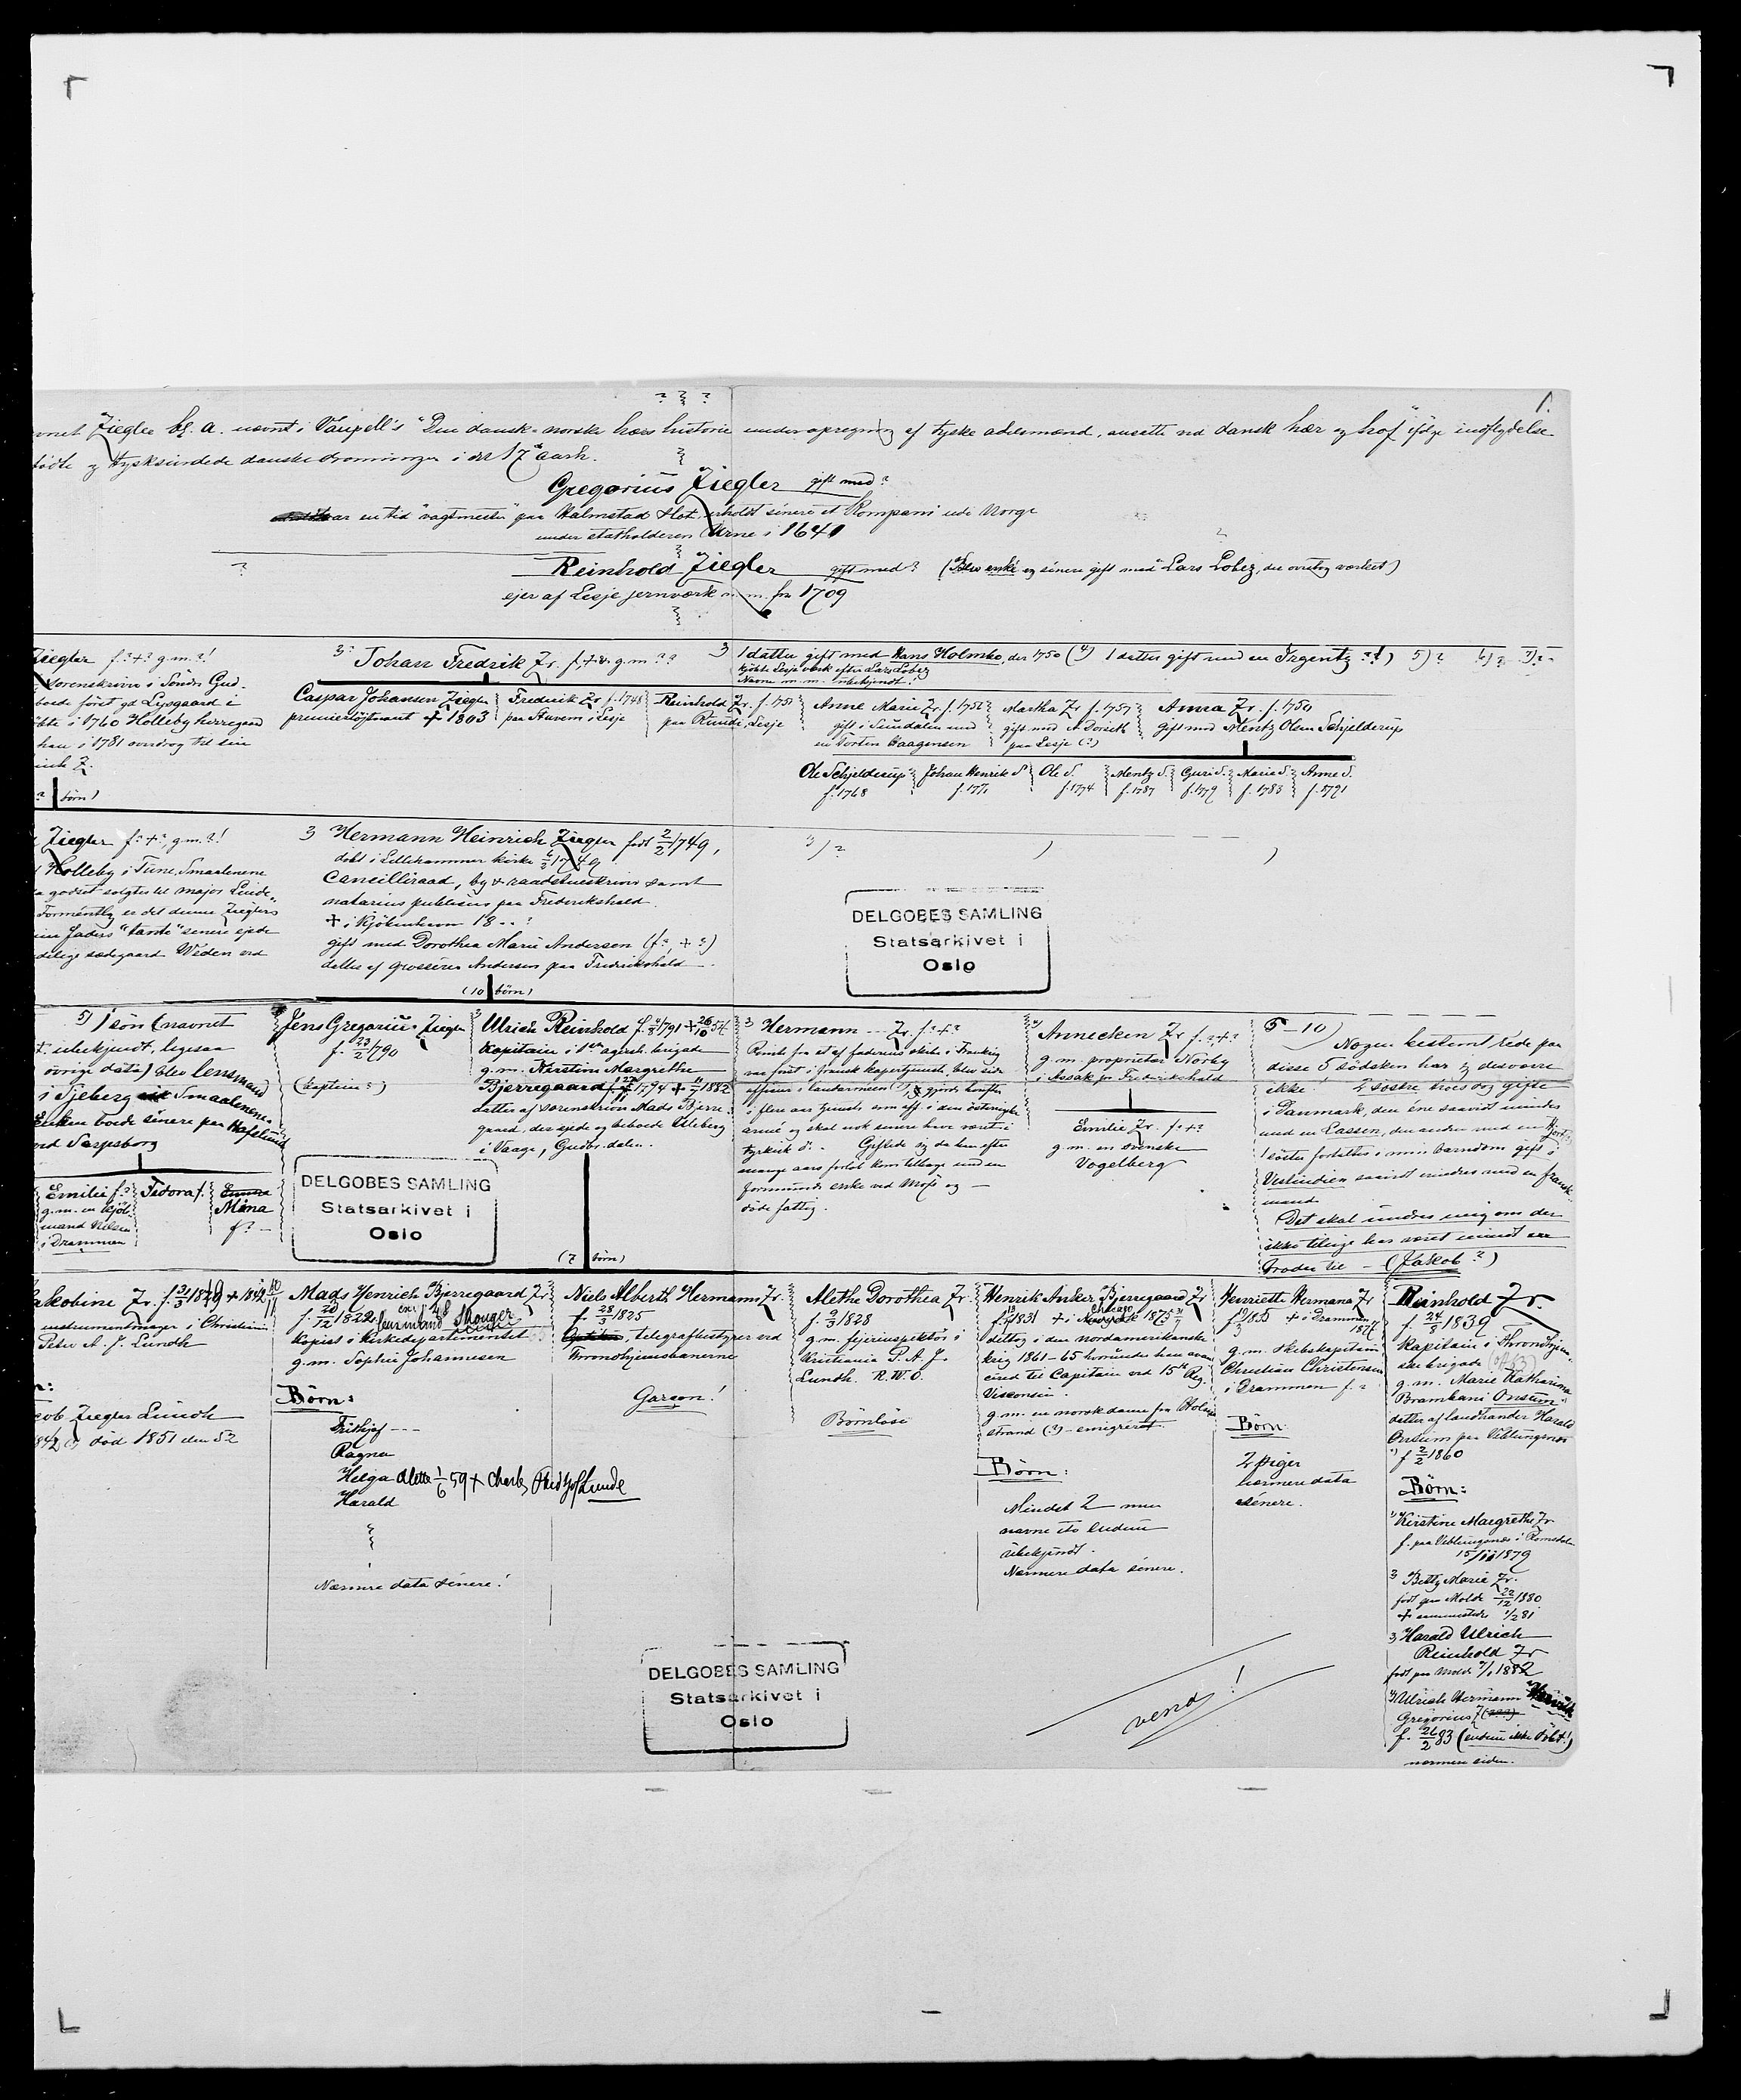 ? ? ?
1.
Ziegler bl. a. nævnt i Vaupell's "Den dansk-norske hærs historie under opregning af tyske adelsmænd, ansatte ved dansk hær og hof ifølge indflydelse
fødte og tysksindede danske dronninger i det 17de aarh.
Gregorius Ziegler gift med?
var en tid "vagtmester" paa Halmstad slot, erholdt senere et Kompani ude Norge
under statholderen Urne i 1641
?
Reinhold Ziegler gift med? (Blev enke og senere gift med Lars Lobez, der overtog værket)
ejer af Lesje jernværk m. m. før 1709
Ziegler f.?+? g.m.?!
Sorenskriver i Søndre Gud-
boede først gd Lysgaard i
i 1760 Holleby herregaard
han i 1781 overdrog til sin
Z.
? børn)
3) Johan Fredrik Zr. f.?+? g.m. ??
Caspar Johansen Ziegler
premierløjtnant + 1803
Fredrik Zr f. 1748
paa Stuvem i Lesje
Reinhold Zr. f. 1751
paa Lesje
3) 1 datter gift med Hans Holmbo, der 1750
kjøbte Lesje værk efter Lars Lobez
Navne m. m. ubekjendt!
(4) 1 datter gift med en Irgentz ?!) 5)? 6)? 7)?
Anne Marie Zr. f. 1752
gift i Sundalen med
en Torten Haagensen
Martha Zr f. 1757
gift med
paa Lesje (?)
Anna Zr. f. 1750
gift med Mentz Olsen Schjelderup
Ole Schjelderup f. 1768
Johan Henrik S f. 177
Ole S. f. 1774
Mentz S. f. 1787
Guri S. f. 1779
Maria S. f. 1783
Anne S. f. 1791
Ziegler f?+?, g.m.?!
Holleby i Tune, Smaalenene
godset solgtes til major Linde-
Formentlig er det denne Zieglers
faders "tante" senere ejede
sædegaard Weden ved
3 Hermann Heinrich Ziegler født 2/2 1749,
døbt i Lillehammer kirke 6/2 1749
Cancelliraad, by & raadstueskriver samt
notarius publicus paa Frederikshald.
+ i Kjøbenhavn 18 - - ?
gift med Dorothea Marie Andersen (f.?, +?)
datter af grosserer Andersen paa Fredrikshald
(10 børn)
3) ?
DELGOBES SAMLING
Statsarkivet i
Oslo
5) 1 søn (navnet
ubekjendt, ligesaa
øvrige data) blev lensmand
i Tjeberg Smaalenene.
Enken boede senere paa Hafslund
ved Sarpsborg
Emilie f?
g.m. en kjøb-
mand Nilsen
i Drammen
Fedora f.
Emma
Mina
f? -
Jens Gregorius Ziegler
f. 23/2 1790
(kaptein?)
DELGOBES SAMLING
Statsarkivet i
Oslo
Ulrich Reinhold f. /8 1791 + 26/10 54
Kapitain i 1ste agersh. brigade
g.m. Kirstine Margrethe
Bjerregaard f. 1794 + 1882
datter af sorenskriver Mads Bjerre-
gaard, der ejede og beboede Ulleberg
i Vaage, Gudbr. dalen.
(7 børn)
3 Hermann - - Zr. f.?+?
Reiste fra et af faderens skibe i Frankrig
var først i fransk kapertjeneste, blev siden
officier i landarmeen (?) & gjorde hvorefter
i flere aar tjeneste som off. i den østerrigske
armé og skal nok senere have været i
tyrkisk d:. Giftede sig da han efter
mange aars forløb kom tilbage med en
formuende enke ved Moss og -
døde fattig.
4) Annecken Zr f.?+?
g.m. proprietær Nørby
i Assak pr Frederikshald
Emilie Zr. f.?+?
g.m. en svenske
Vogelberg
5-10)
Nogen bestemt rede paa
disse 5 sødsken har jeg desværre
ikke! 2 søstre troes dog gifte
i Danmark, den ene saavidt mindes
med en Lassen, den anden med en
1 søster fortaltes i min barndom gift i
Vestindien saavidt mindes med en fransk-
mand.
Det skal undres mig om der
ikke tillige har været mindst en
broder til - (Jakob?)
Jakobine Zr. f. 31/3 1819 + 1842 10/11
instrumentmager i Christiania
Peter A. J. Lundh
Ziegler Lundh
1842 og død 1851 den 5/2
Mads Henrich Bjerregaard Zr
f. 20/12 1822
kopist i Kirkedepartementet
g.m. Sophie Johannesen
Børn:
Frithjof - - -
Ragna
Helga Alette 1/6 59 + Charles Fridtjof Lunde
Harald
Nærmere data senere!
Niels Alberth Hermann Zr.
f. 28/3 1825
telegrafbestyrer ved
Throndhjemsbanerne
Garson!
Alethe Dorothea Zr.
f. 9/3 1828
g.m. fejerinspektør i
Kristiania P. A. J.
Lundh. R.W.O.
Børnløse
Henrik Anker Bjerregaard Zr
f. 1831 + i Newyork Chicago 1875
deltog i den nordamerikanske
krig 1861-65 hvorunder han avan-
cered til Capitain ved 15th Reg.
Visconsin.
g.m. en norsk dame fra Holme-
strand (?) - emigreret.
Børn:
Mindst 2 men
navne etc endnu
ubekjendt.
Nærmere data senere.
Henriette Hermana Zr
f. 1835 + i Drammen
187
g.m. skibskapitain
Christian Christensen
i Drammen f.?
Børn
2 piger
nærmere data
senere.
Reinhold Zr.
f. 24/5 1839
Kapitain i Throndhjem-
ske brigade
g.m. Marie Katharina
Bramhani Onsum
datter af landhandler Harald
Onsum paa Veblungsnæs
f 2/2 1860
Børn:
1) Kirstine Margrethe Zr
f. paa Veblungsnæs i Romsdalen
15/11 1879
2) Betty Marie Zr.
født paa Molde 22/12 1880
+ sammesteds 1/2 81
3) Harald Ulrich
Reinhold Zr
født paa Molde 7/1 1882
4) Ulrich Hermann Henrik
Gregorius Z
f. 26/2 83 (endnu ikke døbt!)
nærmere siden.
DELGOBES SAMLING
Statsarkivet i
Oslo
vend!